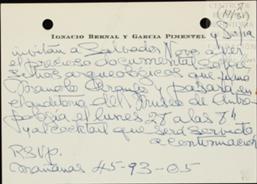 IGNACIO BERNAL Y GARCIA PIMENTEL
y Sofia
invitan a Salvador Novo a ver
el precioso documental sobre
sitios arqueológicos que filmó
Manolo Arango y pasará en
el auditorio del Museo de Antro-
pología el lunes 28 a las 8 h
y al cocktail que será servido
a continuación
RSVP.
mañanas 45-93-05